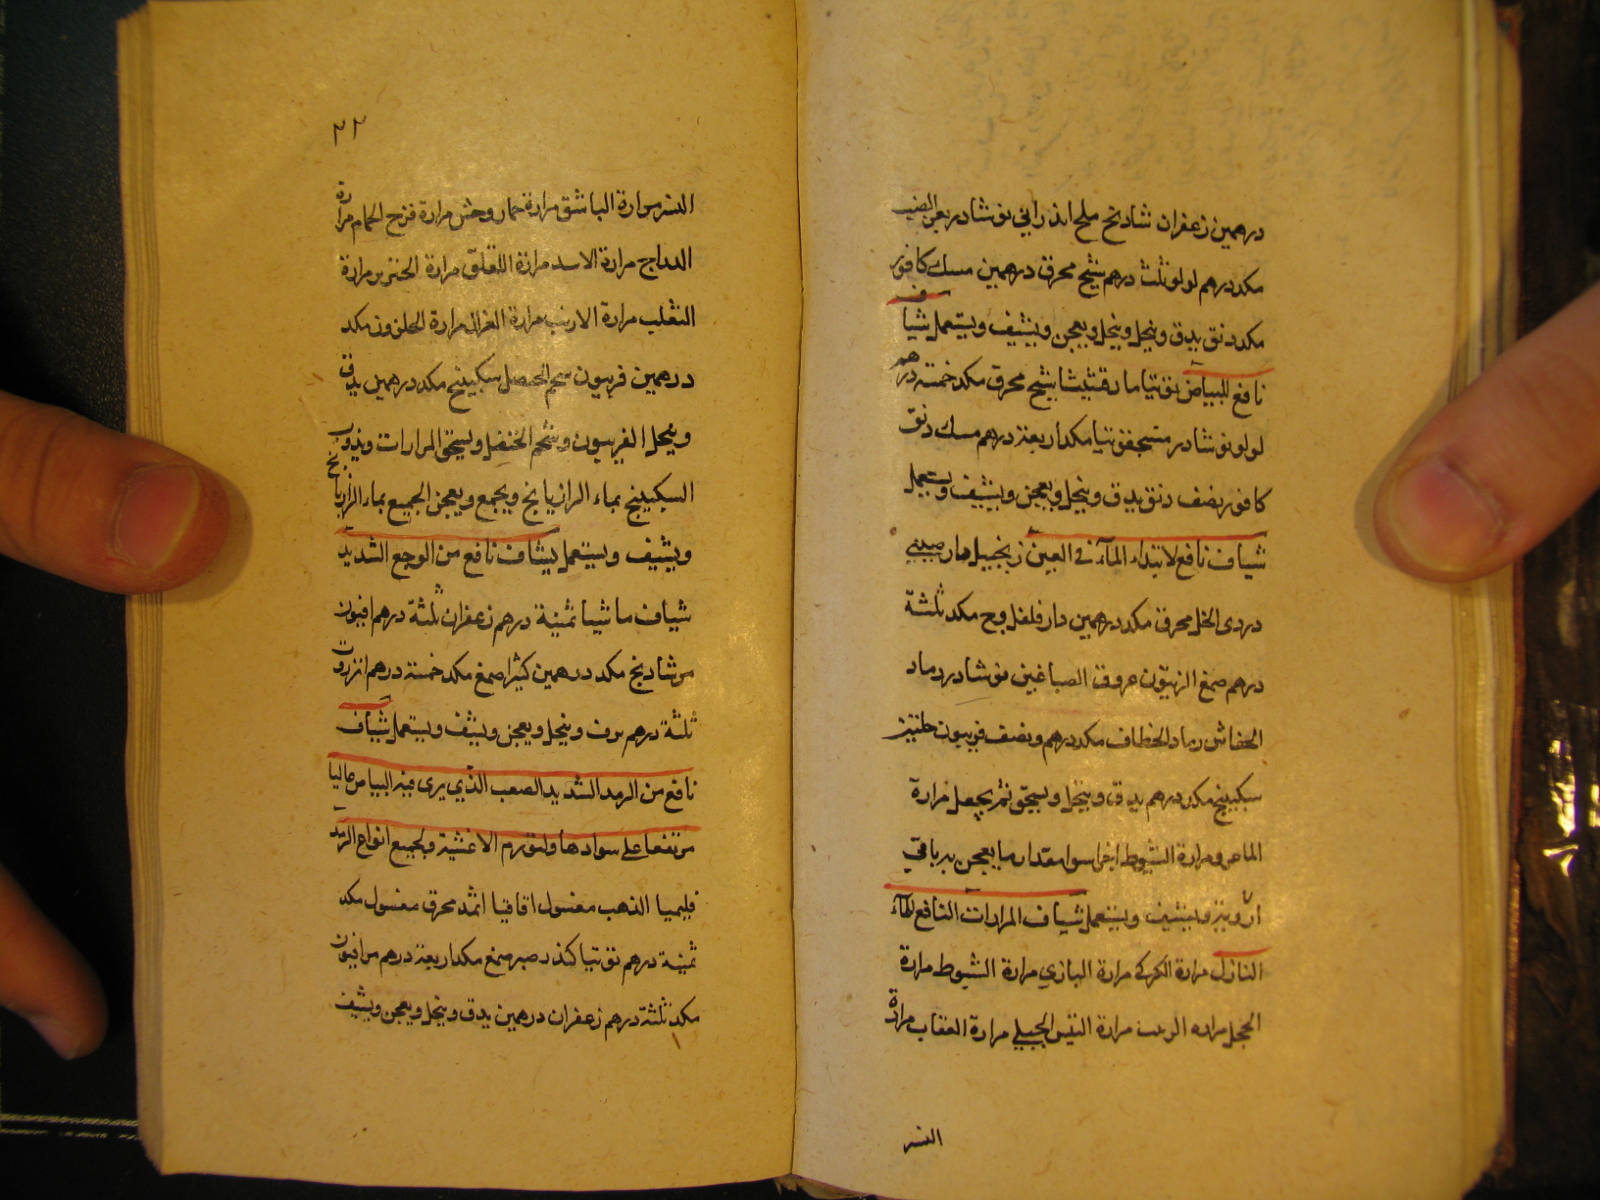 درهمين زعفران شادنج ملح اندراني نوشادر بعر الضب
مكد درهم لولو ثلث درهم شيح محرق درهمين مسك كافور
مكد دنق يدق وينخل وينخل ويعجن ويشيف ويستعمل شياف
نافع للبياض توتيا مارقشيشا شيح محرق مكد خمسة درهم
لولو نوشادر مسحقونيا مكد اربعة درهم مسك دنق
كافور نصف دنق يدق وينخل ويعجن ويشيف ويستعمل
شياف نافع لابتداء المآء في العين زنجبيل دار صيني
دردى الخل محرق مكد درهمين دار فلفل وج مكد ثلثة
درهم صمغ الزيتون عروق الصباغين نوشادر رماد
الخفاش رماد الخطاف مكد درهم ونصف فربيون حلتيت
سكبينج مكد درهم يدق وينخل ويسحق ثم يجعل مرارة
الماعز ومرارة الشبوط اجزا سوا مقدار ما يعجن به باقي
الادوية ويشيف ويستعمل شياف المرارات النافع للمآء
النازل مرارة الكركي مرارة البازي مرارة الشبوط مرارة
الحجل مراره الدب مرارة التيس الجبلي مرارة العقاب مرارة
النسر
٢٢
النسر مرارة الباشق مرارة حمار وحش مرارة فرخ الحمام مرارة
الدراج مرارة الاسد مرارة اللقلق مرارة الخنزير مرارة
الثعلب مرارة الارنب مرارة الغزال مرارة الحلزون مكد
درهمين فربيون شحم الحنضل سكبينج مكد درهمين يدق
وينخل الفربيون وشحم الحنضل ويسحق المرارات ويذوب
السكبينج بماء الرازيانج ويجمع ويعجن الجميع بماء الرازيانج
ويشيف ويستعمل شياف نافع من الوجع الشديد
شياف ماميثا ثمنية درهم زعفران ثلثة درهم افيون
مر شادنج مكد درهمين كثيرا صمغ مكد خمسة درهم انزروت
ثلثة درهم يدق وينخل ويعجن ويشيف ويستعمل شياف
نافع من الرمد الشديد الصعب الذي يرى فيه البياض عاليا
مرتفعا على سوادها ولتورم الاغشية ولجميع انواع الرمد
قليميا الذهب مغسول اقاقيا اثمد محرق مغسول مكد
ثمنية درهم توتيا كندر صبر صمغ مكد اربعة درهم مر افيون
مكد ثلثة درهم زعفران درهمين يدق وينخل ويعجن ويشيف